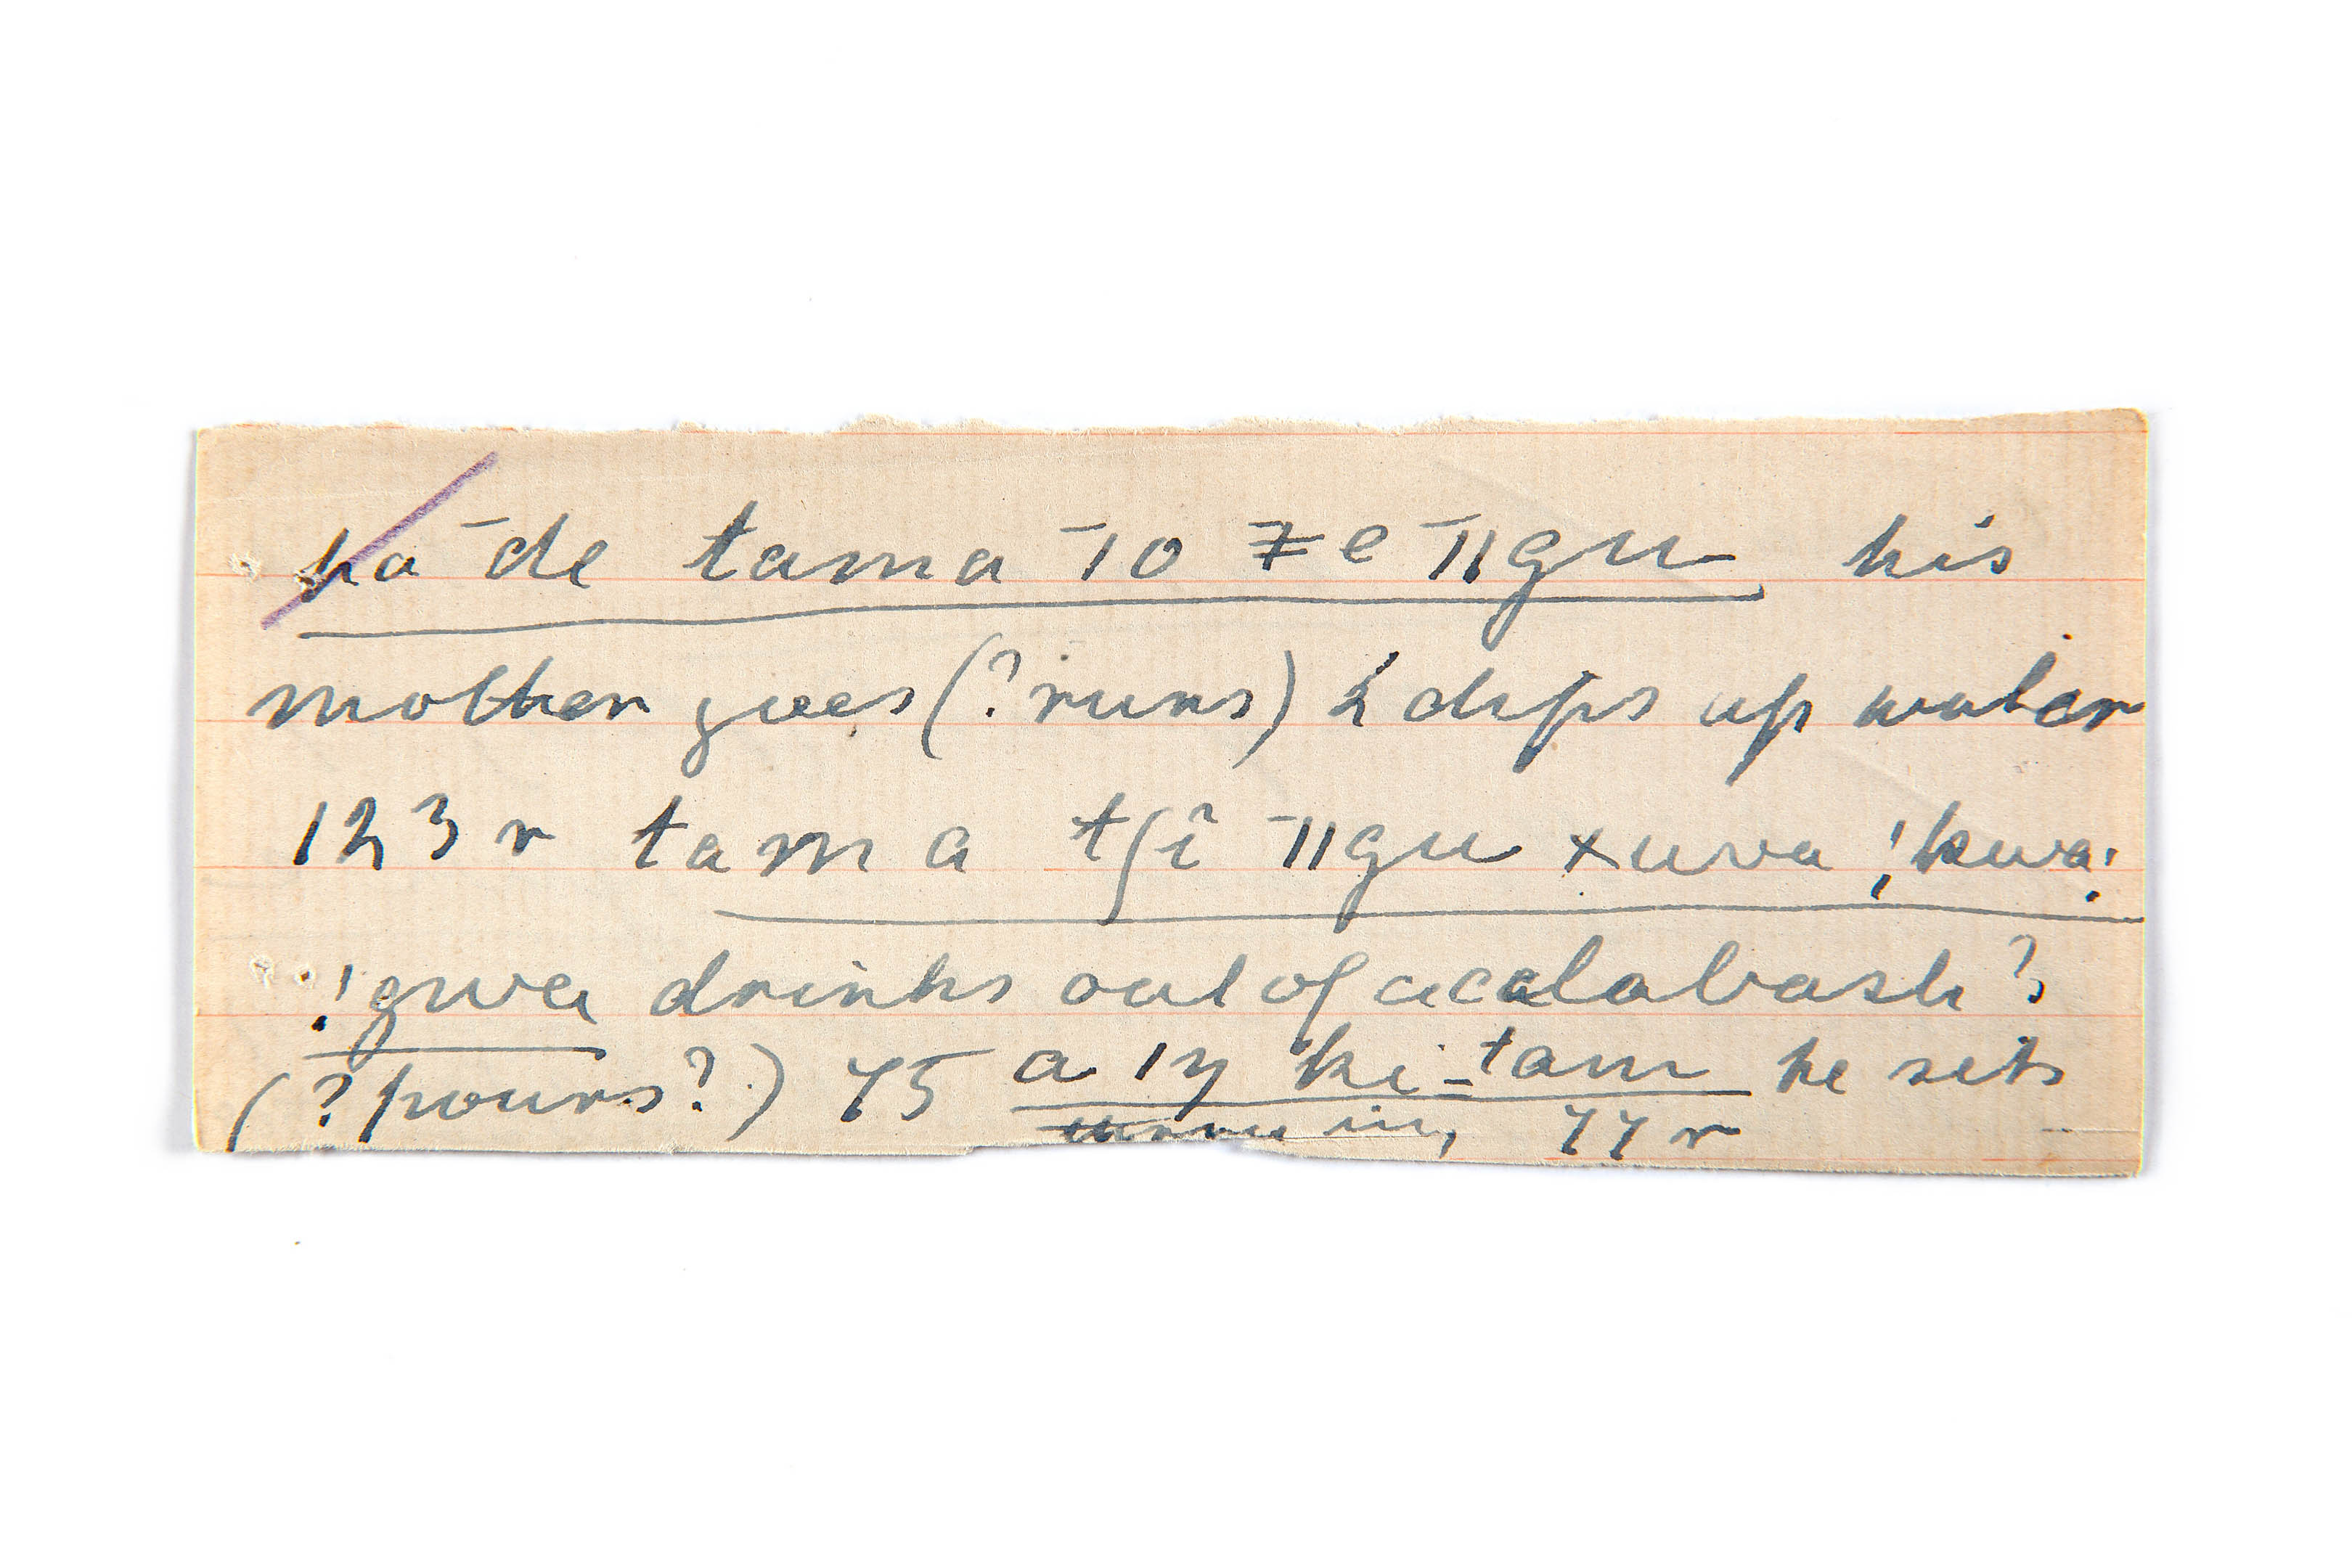 ha ¯de tama ¯ǀo ǂe ¯ǁgu his
mother goes (? runs) & dips up water
123 r tama tʃi ¯ǁgu xuva !kwa:
!gwa drinks out of a calabash?
(? pours?) 75 a ǀŋ ki-_tam he sets
77 r